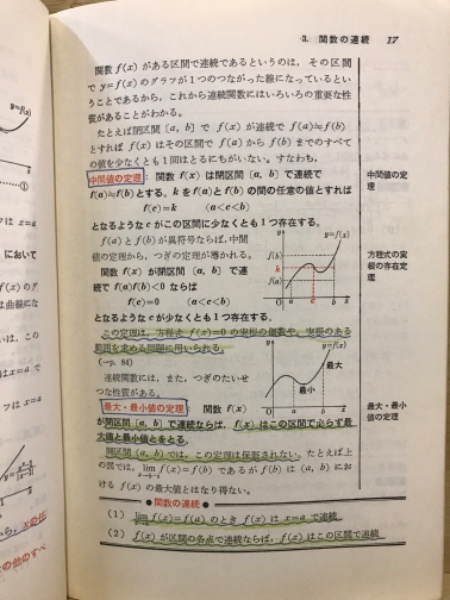 3. 関数の連続 17
関数 f(x) がある区間で連続であるというのは，その区間
で y=f(x) のグラフが1つのつながった線になっているとい
うことであるから，これから連続関数にはいろいろの重要な性
質があることがわかる。
たとえば閉区間 [a, b] で f(x) が連続で f(a)≒f(b)
とすれば f(x) はその区間で f(a) から f(b) までのすべて
の値を少なくとも1回はとるにちがいない。すなわち，
中間値の定理： 関数 f(x) は閉区間 [a, b] で連続で
f(a)≒f(b) とする。k を f(a) と f(b) の間の任意の値とすれば
f(c)=k (a<c<b)
となるような c がこの区間に少なくとも1つ存在する。
中間値の定理
f(a) と f(b) が異符号ならば，中間
値の定理から，つぎの定理が導かれる。
関数 f(x) が閉区間 [a, b] で連
続で f(a)f(b)<0 ならば
f(c)=0 (a<c<b)
となるような c が少なくとも1つ存在する。
y y=f(x)
f(b)
k
f(a)
O a c b x
方程式の実
根の存在定
理
この定理は，方程式 f(x)=0 の実根の個数や，実根のある
範囲を求める問題に用いられる。
(→p. 84)
連続関数には，また，つぎのたいせ
つな性質がある。
y y=f(x)
最大
最小
O a b x
最大・最小値の定理： 関数 f(x)
が閉区間 [a, b] で連続ならば，f(x) はこの区間で必らず最
大値と最小値とをとる。
最大・最小
値の定理
開区間 (a, b) では，この定理は保証されない。たとえば上
の図では，lim f(x)=f(b) であるが f(b) は (a, b) にお
x→b-0
ける f(x) の最大値とはなり得ない。
●関数の連続●
(1) lim f(x)=f(a) のとき f(x) は x=a で連続
x→a
(2) f(x) が区間の各点で連続ならば，f(x) はこの区間で連続
y=f(x)
x
①
フは x=a
において
f(x) のグ
は曲線にな
いは，この
は x=a で
フは x=a
から，xの
の他のすべ